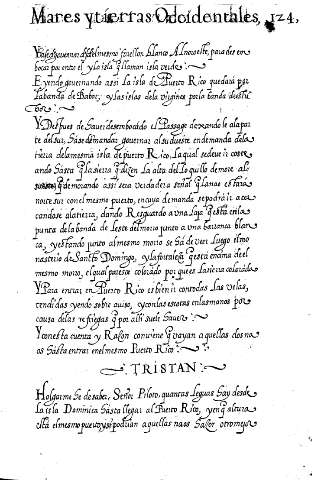 Mares y tierras Ocidentales, 124,
del mesmo fuellon blanco Alnoroeste, para des en
bocar por entre el y la isla q̃ llaman isla verde
E yendo governando assi la isla de Puerto Rico quedará por
la banda de Babor, y las islas de la virgines por la banda de estri
bor
Y Despues de haver desembocado el Passage dexando le a la par
te del sur, Hase de mandar governar al sudueste en demanda de la
tierra de la mesma isla de puerto Rico, La qual se deve ir coste
ando Hasta q̃ la sierra q̃ dizen La alta del Loquillo demore al
q̃ demorando assi sera verdadera señal q̃ la nao estará
norte sur con el mesmo puerto, en cuya demanda se podrá ir a ca
tandose a la tierra, dando Resguardo a una Laja q̃ está en la
punta de la banda de Leste del morro junto a una barranca blan
ca, y estando junto al mesmo morro se ha de ver Luego el mo
nasterio de Santo Domingo, y la fortaleza q̃ está encima del
mesmo morro, el qual puerto colorado por q̃ es La tierra colorada
Y Para entrar en Puerto Rico es bien ir con todas Las velas,
tendidas yendo sobre aviso, y con las escotas en las manos por
causa de las refriegas q̃ por alli suele haver
Y con esta cuenta y Razon conviene q̃ vayan aquellas dos na
os hasta entrar en el mesmo Puerto Rico
TRISTAN
Holgarme he de saber, Señor Piloto, quantas leguas hay desde
La isla Dominica hasta llegar al Puerto Rico, y en q̃ altura
está el mesmo puerto y si podrian aquellas naos hazer otro mejor